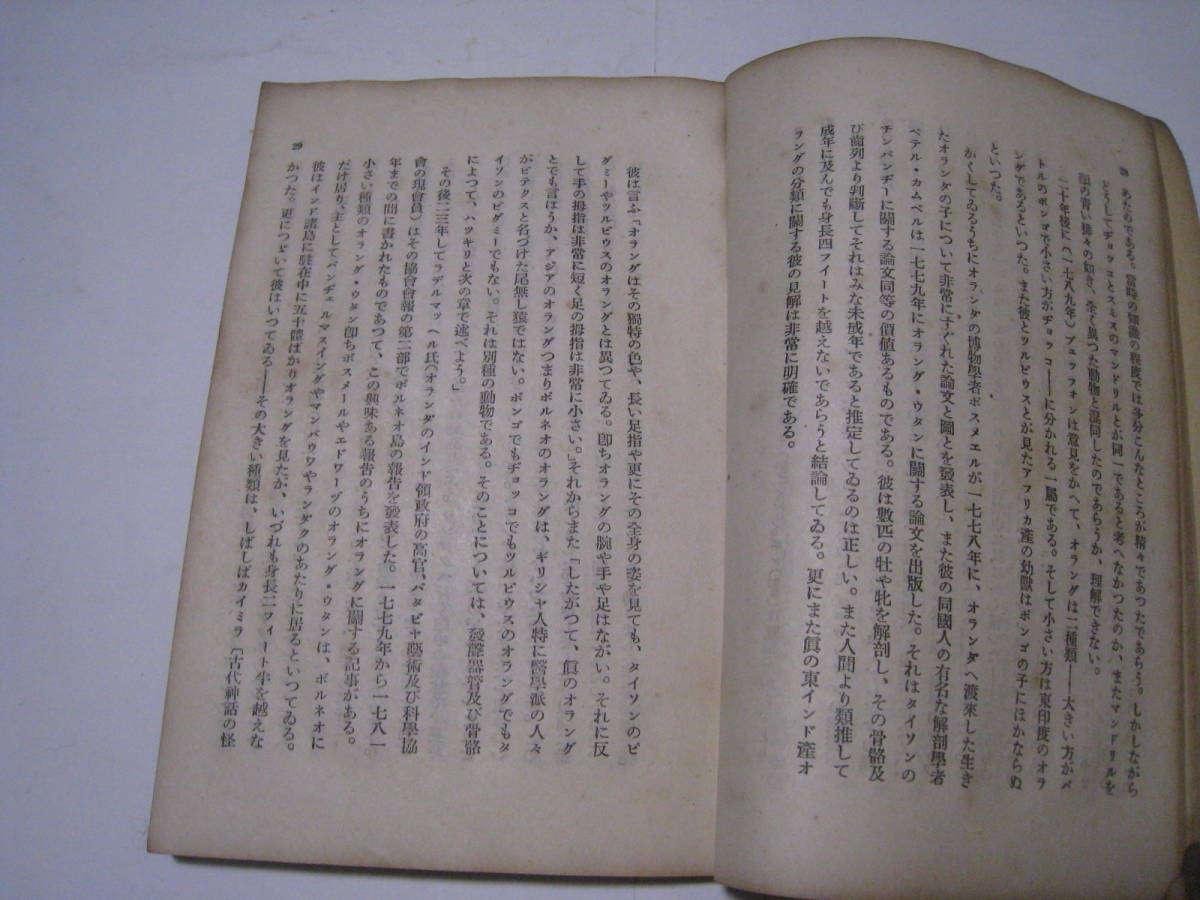 28
あたのである。當時の知識の程度では多分こんなところが精々であつたであらう。しかしながら
どうしてヂョッコとスミスのマンドリルとが同一であると考へなかつたのか、またマンドリルを
顏の青い狒々の如き、全く異つた動物と混同したのであらうか、理解できない。
二十年後に(一七八九年)ブュッフォンは意見をかへて、オラングは二種類――大きい方がパ
トルのポンゴで小さい方がヂョッコ――に分かれる一屬である。そして小さい方は東印度のオラ
ングであるといつた。また彼とツルピウスとが見たアフリカ產の幼獸はポンゴの子にほかならぬ
といつた。
かくしてゐるうちにオランダの博物學者ボスメエルが一七七八年に、オランダへ渡來した生き
たオランダの子について非常にすぐれた論文と圖とを發表し、また彼の同國人の有名な解剖學者
ペテル・カムペルは一七七九年にオラング・ウタンに關する論文を出版した。それはタイソンの
チンパンヂーに關する論文同等の價値あるものである。彼は數匹の牡や牝を解剖し、その骨骼及
び齒列より判斷してそれはみな未成年であると推定してゐるのは正しい。また人間より類推して
成年に及んでも身長四フイートを越えないであらうと結論してゐる。更にまた眞の東インド產オ
ラングの分類に關する彼の見解は非常に明確である。
彼は言ふ「オラングはその獨特の色や、長い足指や更にその全身の姿を見ても、タイソンのピ
グミーやツルピウスのオラングとは異つてゐる。卽ちオラングの腕や手や足はながい。それに反
して手の拇指は非常に短く足の拇指は非常に小さい。」それからまた「したがつて、眞のオラング
とでも言はうか、アジアのオラングつまりボルネオのオラングは、ギリシャ人特に醫學派の人々
がピテクスと名づけた尾無し猿ではない。ポンゴでもヂョッコでもツルピウスのオラングでもタ
イソンのピグミーでもない。それは別種の動物である。そのことについては、發聲器管及び骨骼
によつて、ハツキリと次の章で述べよう。」
その後二三年してラデルマッヘル氏(オランダのインド領政府の高官、バタビヤ藝術及び科學協
會の現會員)はその協會會報の第二部でボルネオ島の報告を發表した。一七七九年から一七八一
年までの間に書かれたものであつて、この興味ある報告のうちにオラングに關する記事がある。
小さい種類のオラング・ウタン卽ちボスメールやエドワーヅのオラング・ウタンは、ボルネオに
だけ居り、主としてバンヂェルマスイングやマンパウワやランダクのあたりに居るといつてゐる。
彼はインド諸島に駐在中に五十體ばかりオラングを見たが、いづれも身長二フィート半を越えな
かつた。更につづいて彼はいつてゐる――その大きい種類は、しばしばカイミラ〔古代神話の怪
29